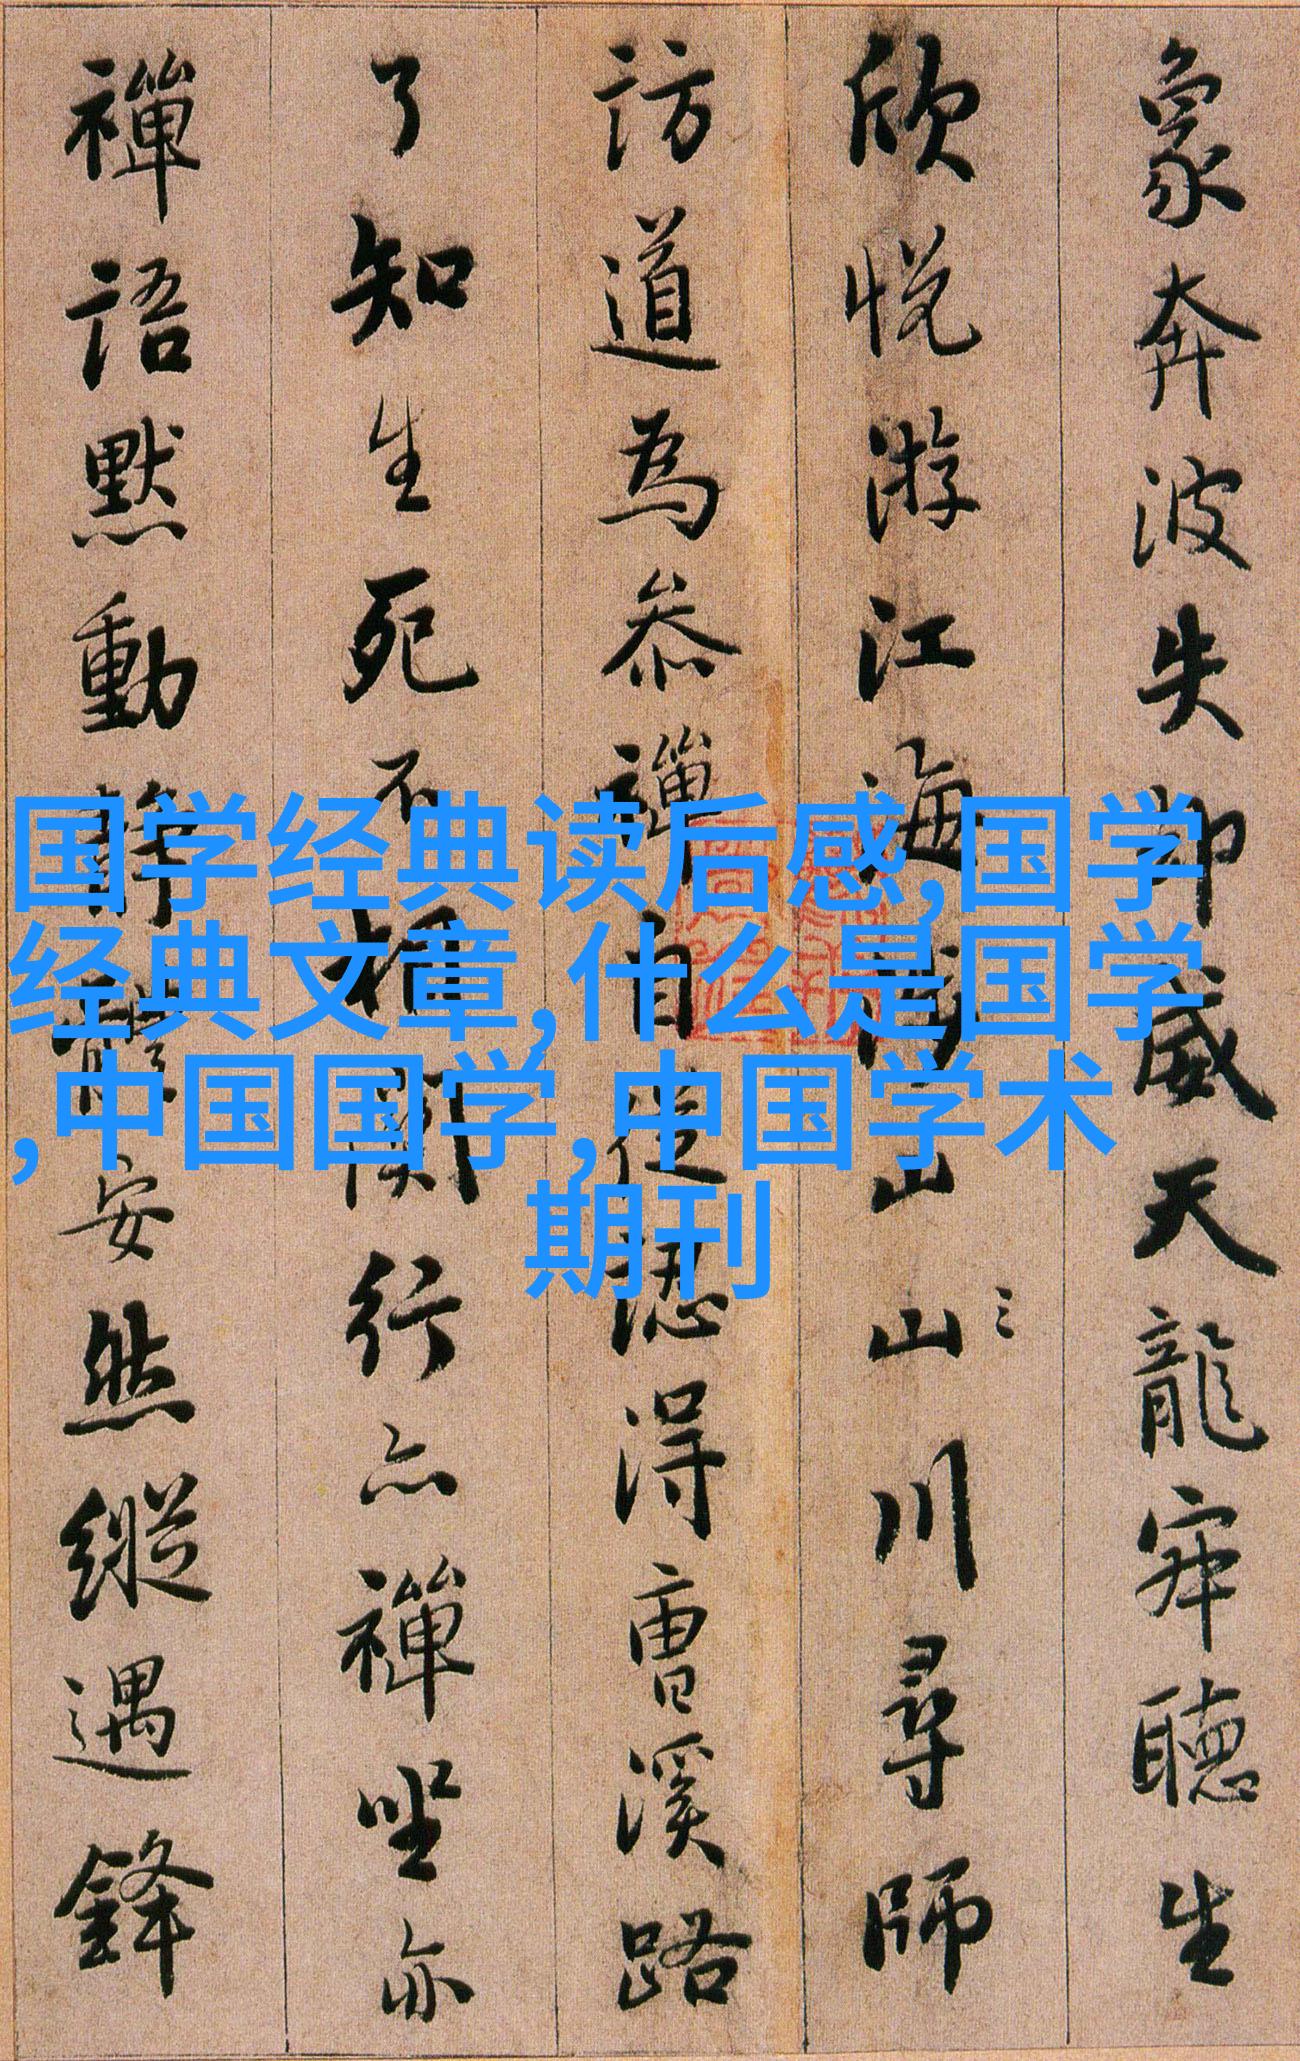 象奔波失卻威天龍寂聽生
欣悅游江海涉山山川尋師
訪道為叅禪自從認得曹溪路
了知生死不相關行亦禪坐亦
禪語默動靜體安然縱遇鋒
国学经典读后感,国学
经典文章,什么是国学
,中国国学,中国学术
期刊